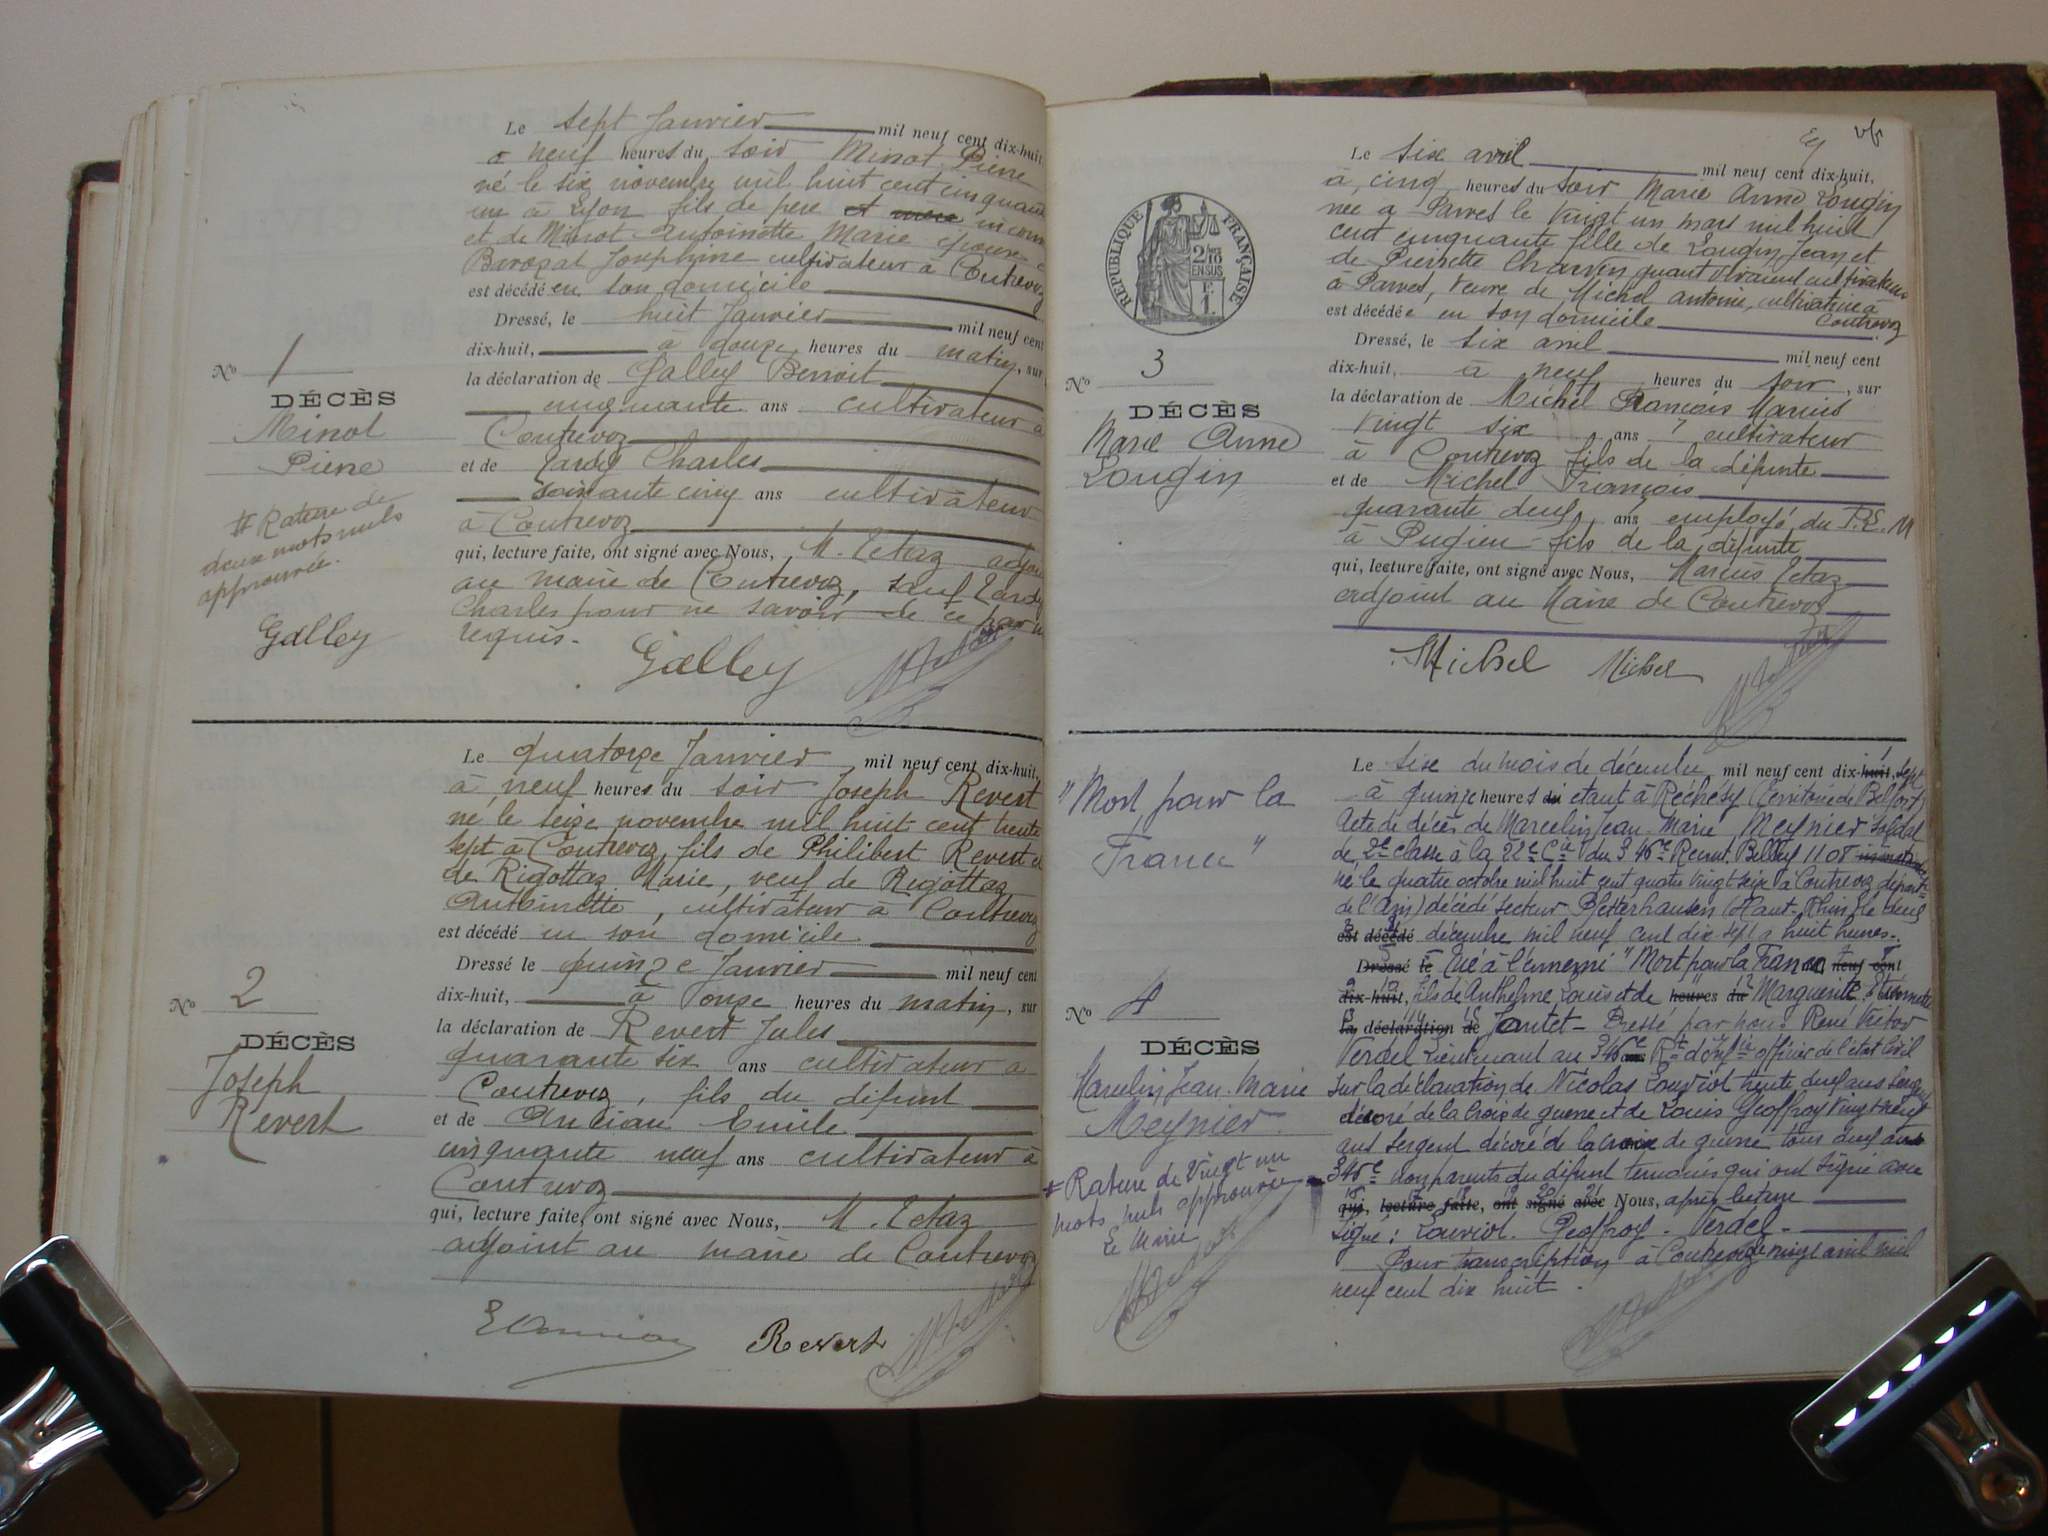 Le sept Janvier mil neuf cent dix-huit,
à neuf heures du soir Minot Pierre
né le six novembre mil huit cent cinquante
un à Lyon fils de père et mère inconn
et de Minot Antoinette Marie époux
Josephine cultivateur à Contrevoz
est décédé en son domicile
Dressé, le huit Janvier mil neuf cent
dix-huit, à douze heures du matin, sur
la déclaration de Galley Benoit
cinquante ans cultivateur à
Contrevoz
et de Tardy Charles
soixante cinq ans cultivateur
à Contrevoz
qui, lecture faite, ont signé avec Nous, M. Tétaz adjoint
au maire de Contrevoz, sauf Tardy
Charles pour ne savoir de ce par n
requis.
Galley
No 1
DÉCÈS
Minot
Pierre
# Rature de
deux mots nuls
approuvée.
Galley
Le quatorze Janvier mil neuf cent dix-huit,
à neuf heures du soir Joseph Revert
né le seize novembre mil huit cent trente
sept à Contrevoz fils de Philibert Revert et
de Rigottaz Marie, veuf de Rigottaz
Antoinette, cultivateur à Contrevoz
est décédé en son domicile
Dressé le quinze Janvier mil neuf cent
dix-huit, à onze heures du matin, sur
la déclaration de Revert Jules
quarante six ans cultivateur à
Contrevoz, fils du défunt
et de Ancian Emile
cinquante neuf ans cultivateur à
Contrevoz
qui, lecture faite, ont signé avec Nous, M. Tétaz
adjoint au maire de Contrevoz
E Ancian Revert
No 2
DÉCÈS
Joseph
Revert
Le six avril mil neuf cent dix-huit,
à cinq heures du soir Marie Anne Lougin
née à Parves le vingt un mars mil huit
cent cinquante fille de Lougin Jean et
de Pierrette Charvin quant vivaient cultivateurs
à Parves, veuve de Michel Antoine, cultivatrice à
Contrevoz
est décédée en son domicile
Dressé, le six avril mil neuf cent
dix-huit, à neuf heures du soir, sur
la déclaration de Michel François Marius
vingt six ans cultivateur
à Contrevoz fils de la défunte
et de Michel François
quarante deux ans employé du P.L.M
à Pugieu fils de la défunte
qui, lecture faite, ont signé avec Nous, Marius Tétaz
adjoint au Maire de Contrevoz
Michel Michel
RÉPUBLIQUE FRANÇAISE
2/10
EN SUS
F.
1.
No 3
DÉCÈS
Marie Anne
Lougin
Le six du mois de décembre mil neuf cent dix-huit, sept
à quinze heures du étant à Réchésy (Territoire de Belfort)
Acte de décès de Marcelin Jean-Marie Meynier soldat
de 2e classe à la 22e Cie du 346e Recrut. Belley 1108
né le quatre octobre mil huit cent quatre vingt seize à Contrevoz départ
de l'Ain) décédé secteur Pfetterhausen (Haut-Rhin) le deux
est décédé décembre mil neuf cent dix-sept à huit heures.
Dressé le Tué à l'ennemi "Mort pour la France neuf cent
dix-huit, fils de Anthelme Louis et de heures du Marguerite
la déclaration de Jantet - Dressé par nous René Victor
Verdel Lieutenant au 346e ans Rt d'Infie officier de l'état civil
sur la déclaration de Nicolas Louviot trente deux ans Sergent
décoré de la croix de guerre et de Louis Geoffroy vingt-neuf
ans sergent décoré de la croix de guerre tous deux au
346e non parents du défunt témoins qui ont signé avec
qui, lecture faite, ont signé avec Nous, après lecture
Signé : Louviot. Geoffroy. Verdel.
Pour transcription à Contrevoz le vingt avril mil
neuf cent dix huit.
"Mort pour la
France"
No 4
DÉCÈS
Marcelin Jean-Marie
Meynier
# Rature de vingt un
mots nuls approuvée
Le Maire